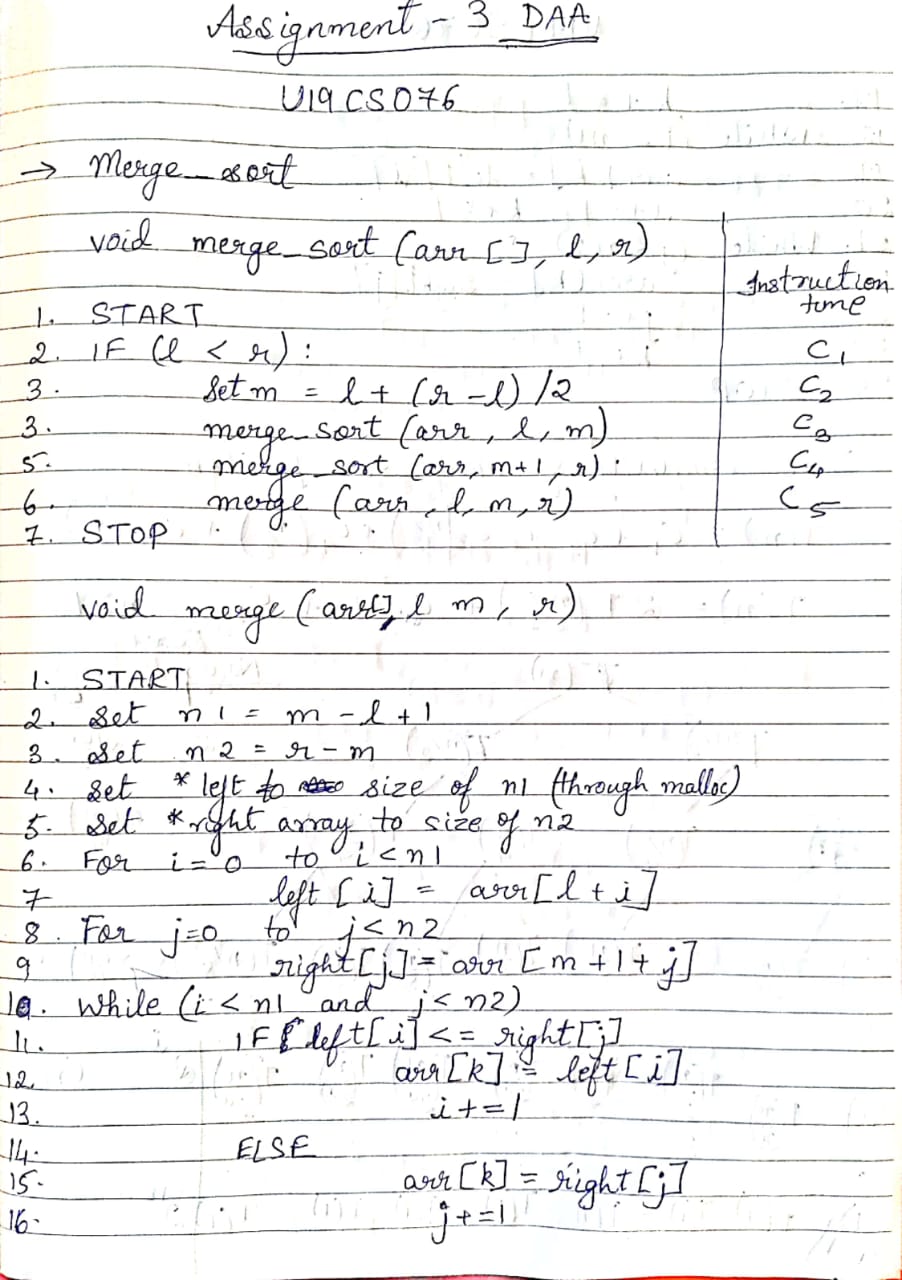 Assignment - 3 DAA
U19CS076
→ Merge_sort
void merge_sort (arr [], l, r)
Instruction time
1. START
2. IF (l < r) : C1
3. Set m = l + (r - l) /2 C2
3. merge_sort (arr, l, m) C3
5. merge_sort (arr, m+1, r) C4
6. merge (arr, l, m, r) C5
7. STOP
void merge (arr[], l m, r)
1. START
2. Set n1 = m - l + 1
3. Set n2 = r - m
4. Set *left to size of n1 (through malloc)
5. Set *right array to size of n2
6. For i=0 to i<n1
7 left [i] = arr[l+i]
8. For j=0 to j<n2
9 right[j] = arr [m+1+j]
10. While (i<n1 and j<n2)
11. IF left[i] <= right[j]
12. arr[k] = left[i]
13. i+=1
14. ELSE
15. arr[k] = right[j]
16. j+=1